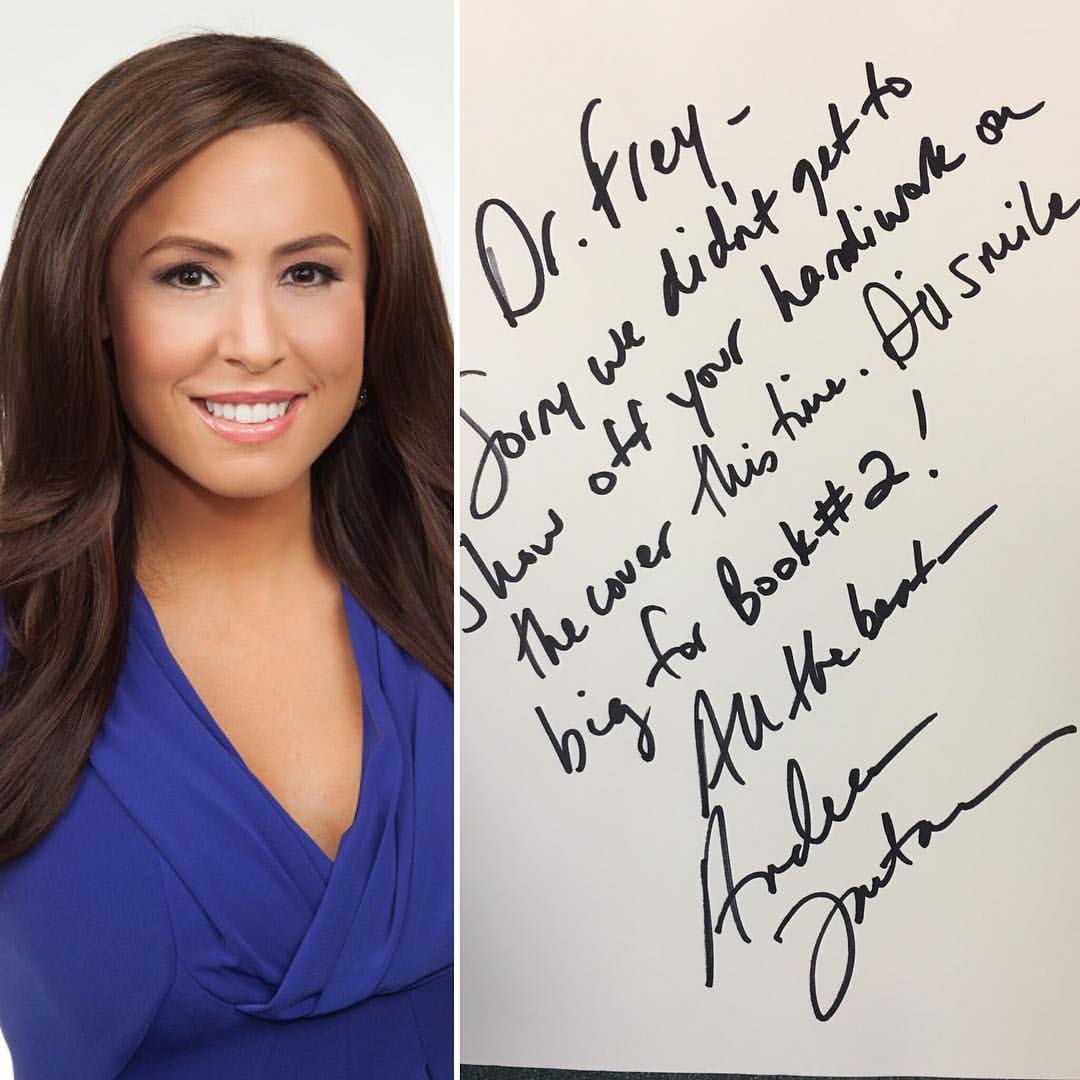 Dr. Frey-
Sorry we didn't get to
show off your handiwork on
the cover this time. I'll smile
big for Book #2!
All the best-
Andrea